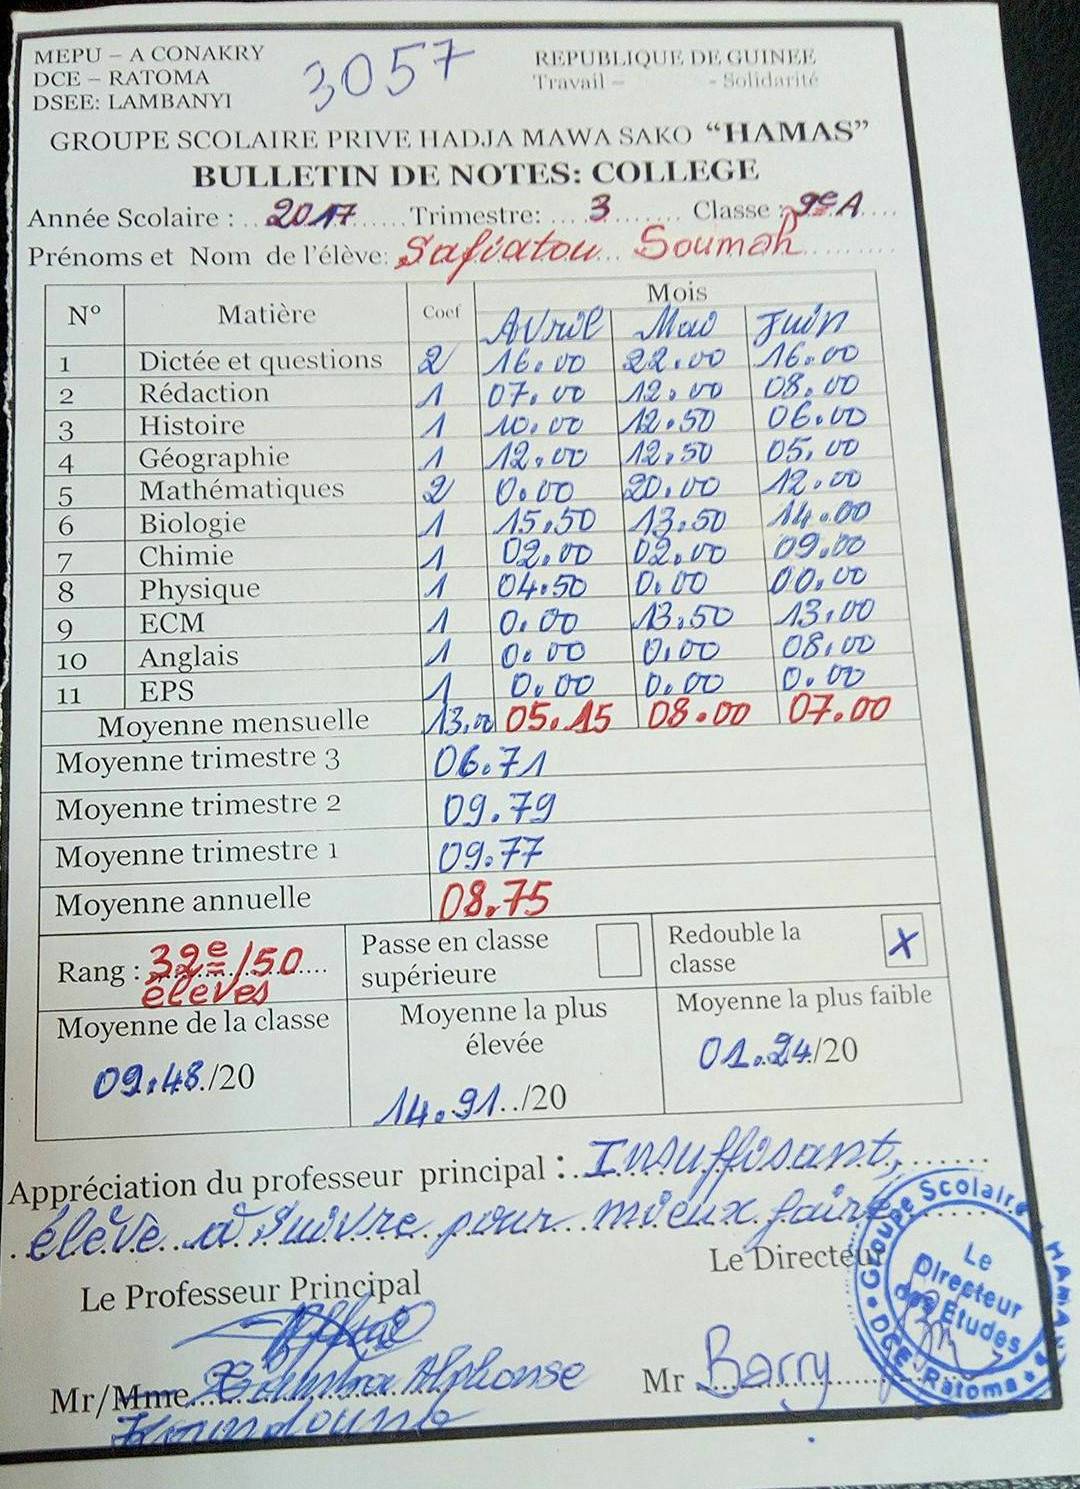 MEPU – A CONAKRY
DCE – RATOMA
DSEE: LAMBANYI
3057
REPUBLIQUE DE GUINEE
Travail – - Solidarité
GROUPE SCOLAIRE PRIVE HADJA MAWA SAKO “HAMAS”
BULLETIN DE NOTES: COLLEGE
Année Scolaire : 2017 Trimestre: 3 Classe : 9e A
Prénoms et Nom de l'élève: Safiatou Soumah
N° Matière Coef Mois
Avril Mai Juin
1 Dictée et questions 2 16.00 22.00 16.00
2 Rédaction 1 07.00 12.00 08.00
3 Histoire 1 10.00 12.50 06.00
4 Géographie 1 12.00 12.50 05.00
5 Mathématiques 2 0.00 20.00 12.00
6 Biologie 1 15.50 13.50 14.00
7 Chimie 1 02.00 02.00 09.00
8 Physique 1 04.50 0.00 00.00
9 ECM 1 0.00 13.50 13.00
10 Anglais 1 0.00 0.00 08.00
11 EPS 1 0.00 0.00 0.00
Moyenne mensuelle 13.00 05.15 08.00 07.00
Moyenne trimestre 3 06.71
Moyenne trimestre 2 09.79
Moyenne trimestre 1 09.77
Moyenne annuelle 08.75
Rang : 32e/50
élèves
Passe en classe
supérieure
Redouble la
classe X
Moyenne de la classe
09.48/20
Moyenne la plus
élevée
14.91/20
Moyenne la plus faible
01.24/20
Appréciation du professeur principal : Insuffisant,
élève à suivre pour mieux faire
Le Professeur Principal
Le Directeur
Mr/Mme Alphonse
Mr Barry
Groupe Scolaire HAMAS
Le
Directeur
des Etudes
DCE Ratoma